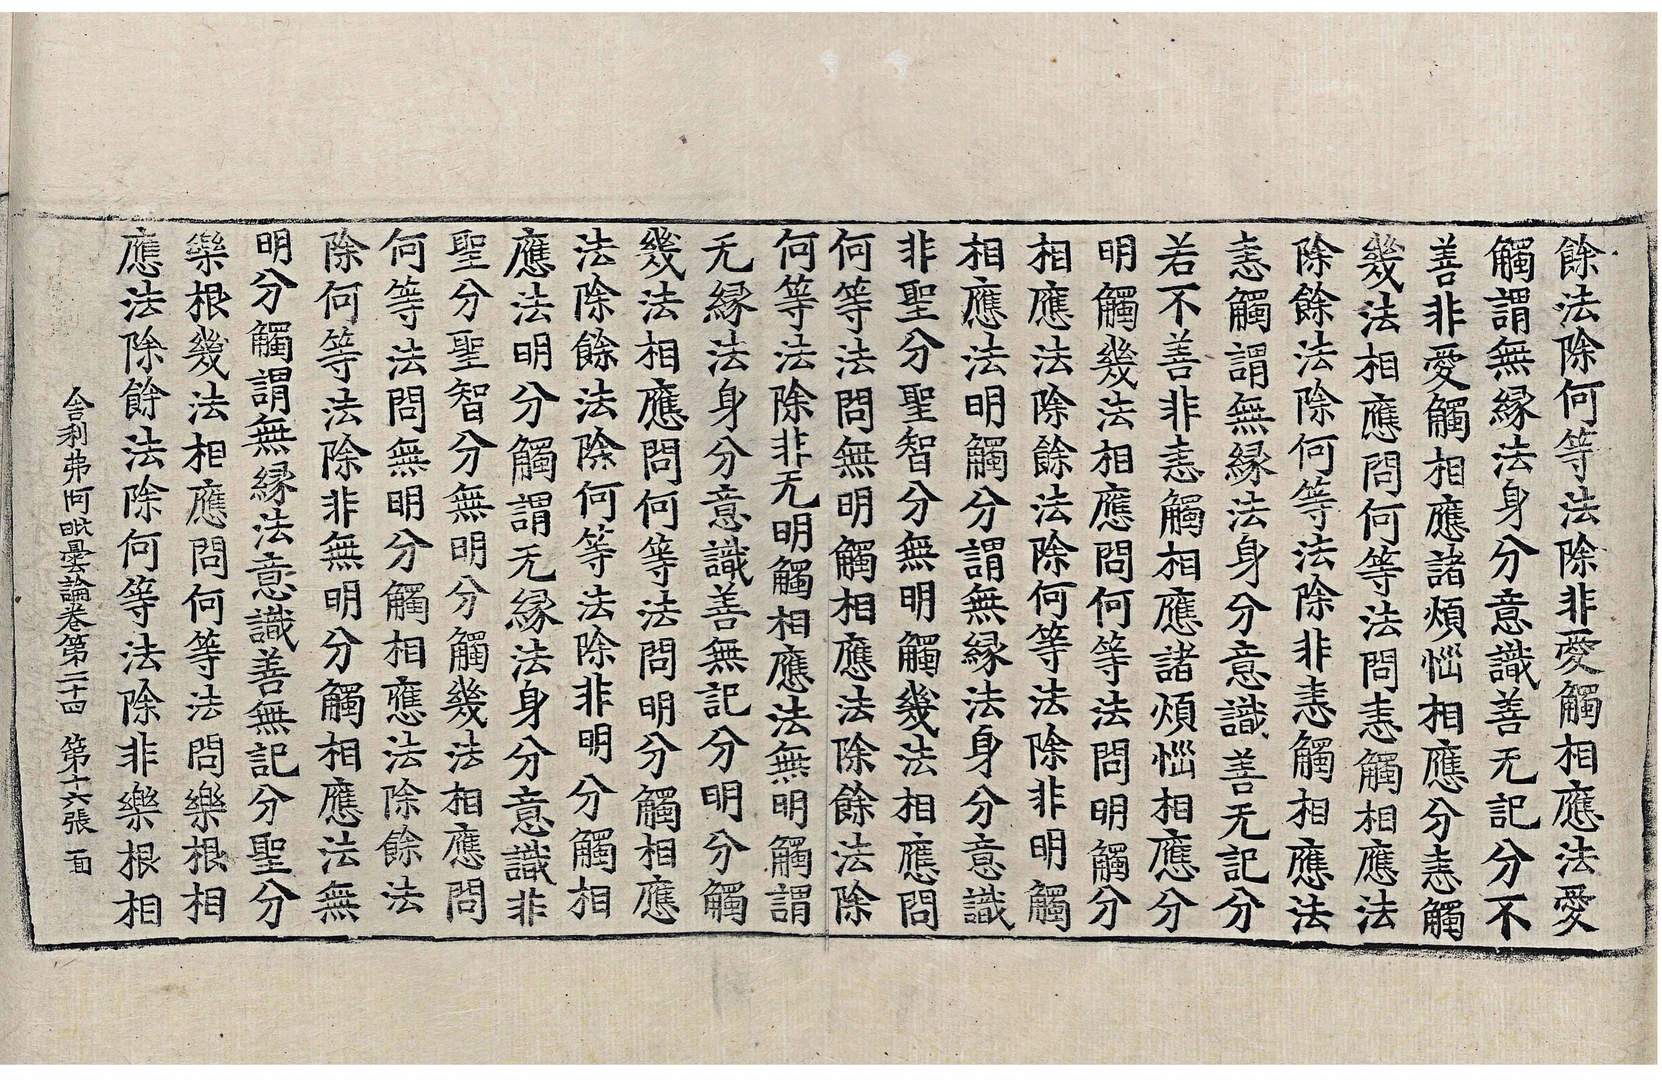 餘法除何等法除非愛觸相應法愛
觸謂無緣法身分意識善无記分不
善非愛觸相應諸煩惱相應分恚觸
幾法相應問何等法問恚觸相應法
除餘法除何等法除非恚觸相應法
恚觸謂無緣法身分意識善无記分
若不善非恚觸相應諸煩惱相應分
明觸幾法相應問何等法問明觸分
相應法除餘法除何等法除非明觸
相應法明觸分謂無緣法身分意識
非聖分聖智分無明觸幾法相應問
何等法問無明觸相應法除餘法除
何等法除非无明觸相應法無明觸謂
无緣法身分意識善無記分明分觸
幾法相應問何等法問明分觸相應
法除餘法除何等法除非明分觸相
應法明分觸謂无緣法身分意識非
聖分聖智分無明分觸幾法相應問
何等法問無明分觸相應法除餘法
除何等法除非無明分觸相應法無
明分觸謂無緣法意識善無記分聖分
樂根幾法相應問何等法問樂根相
應法除餘法除何等法除非樂根相
舍利弗阿毗曇論卷第二十四 第十六張 一面